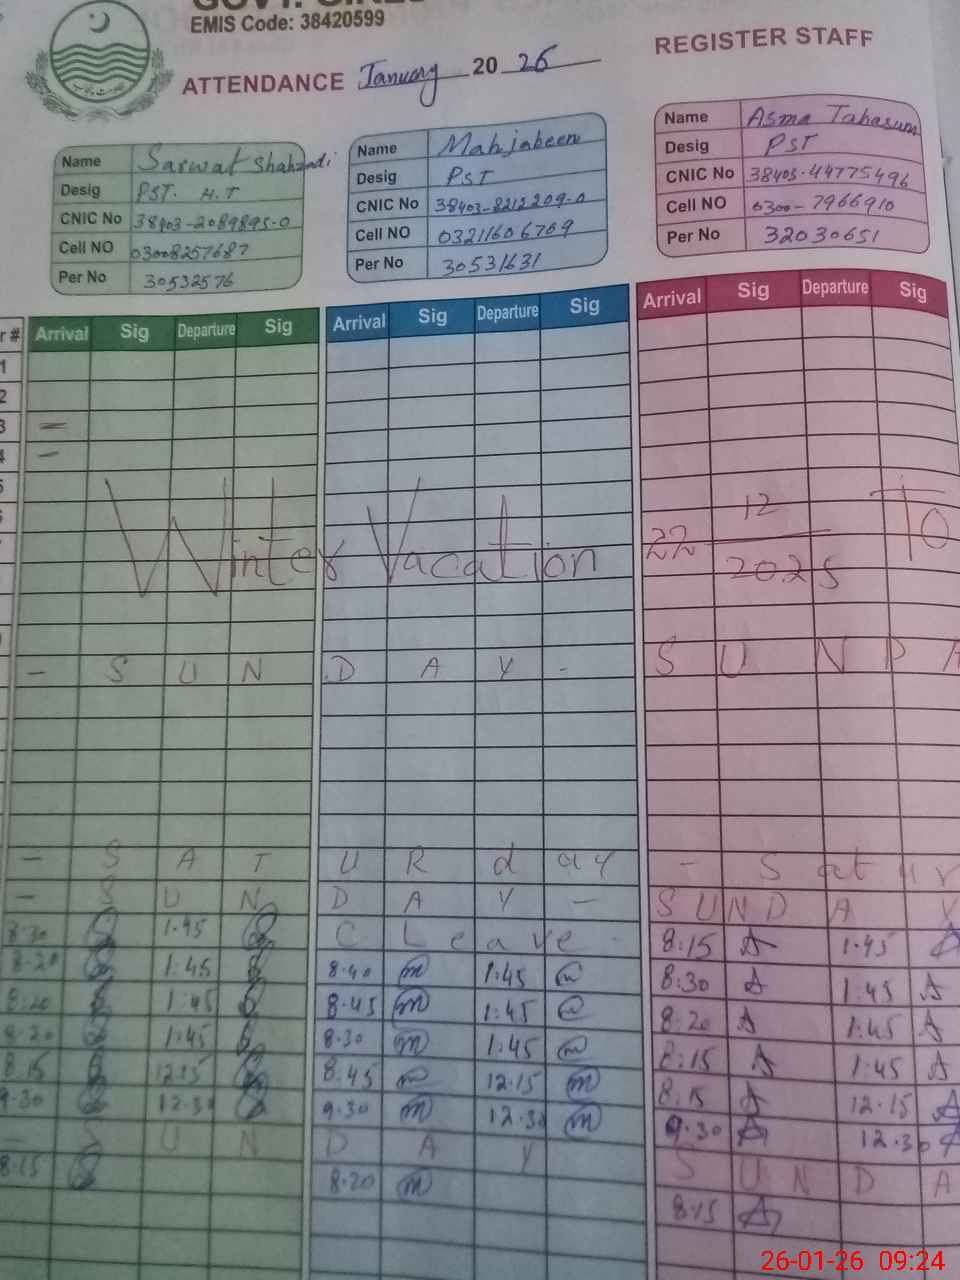 GOVT. GIRLS
EMIS Code: 38420599
ATTENDANCE January 20 26 REGISTER STAFF
Name Sarwat Shahzadi
Desig PST. H.T
CNIC No 38403-2089895-0
Cell NO 03008257687
Per No 30532576
Name Mahjabeen
Desig PST
CNIC No 38403-8212209-0
Cell NO 03211606769
Per No 30531631
Name Asma Tabasum
Desig PST
CNIC No 38403-44775496
Cell NO 0300-7966910
Per No 32030651
r # Arrival Sig Departure Sig Arrival Sig Departure Sig Arrival Sig Departure Sig
1
2
3 =
4 -
5
Winter Vacation 22 12 2025 To
- S U N D A Y - S U N D A
- S A T U R d a y - S a t u r
- S U N D A Y - S U N D A Y
8:30 1:45 C L e a v e - 8:15 A 1:45 A
8:20 1:45 8:40 m 1:45 m 8:30 A 1:45 A
8:20 1:45 8:45 m 1:45 m 8:20 A 1:45 A
8:20 1:45 8:30 m 1:45 m 8:15 A 1:45 A
8:15 12:15 8:45 m 12:15 m 8:15 A 12:15 A
9:30 12:30 9:30 m 12:30 m 9:30 A 12:30 A
- S U N D A Y S U N D A
8:15 8:20 m 8:15 A
26-01-26 09:24